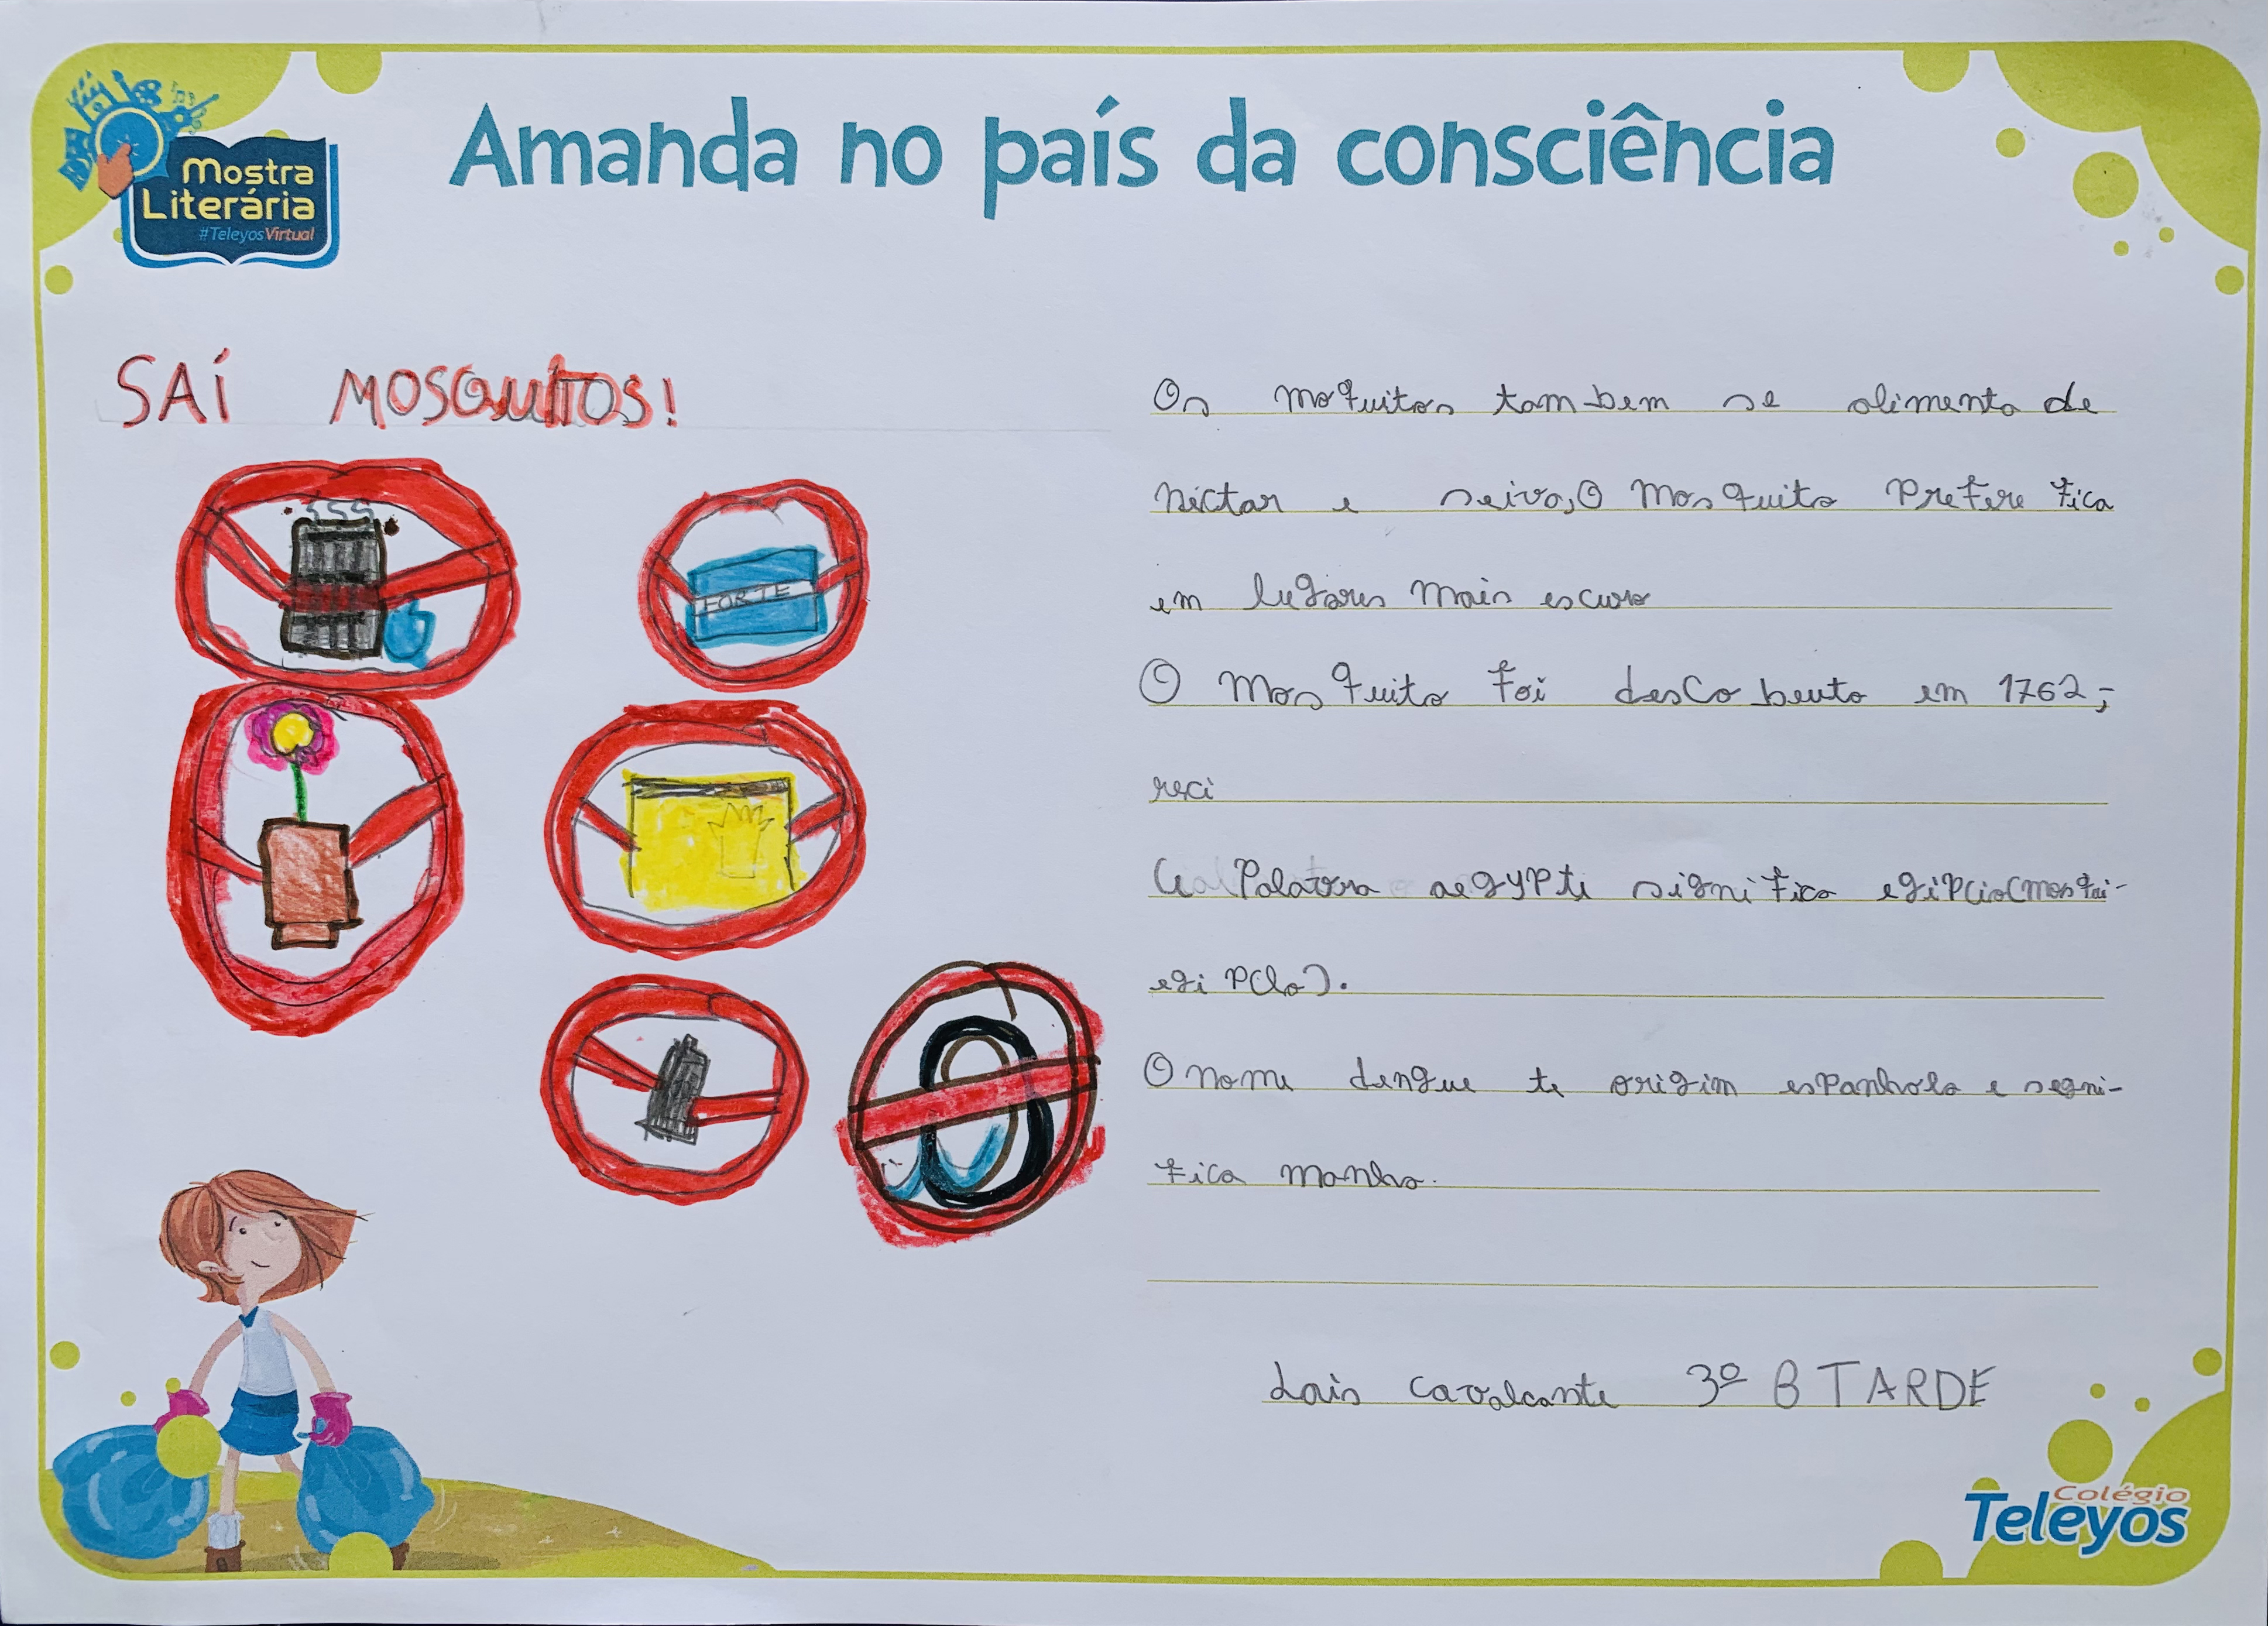 Mostra
Literária
#TeleyosVirtual
Amanda no país da consciência
SAÍ MOSQUITOS!
FORTE
Os moquitos tambem se alimenta de
nectar e seiva, O mosquito prefere fica
em lugares mais escuro
O mosquito foi descobeuto em 1762;
reci
a Palavra aegypti significa egipcio(mosqui-
egipcio).
O nome dengue te origim espanhola e segni-
fica manha.
Lais Cavalcante 3º B TARDE
Colégio
Teleyos